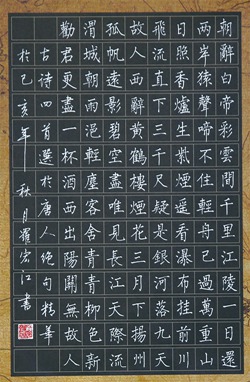 朝辭白帝彩雲間千里江陵一日還
兩岸猿聲啼不住輕舟已過萬重山
日照香爐生紫煙遙看瀑布掛前川
飛流直下三千尺疑是銀河落九天
故人西辭黃鶴樓煙花三月下揚州
孤帆遠影碧空盡唯見長江天際流
渭城朝雨浥輕塵客舍青青柳色新
勸君更盡一杯酒西出陽關無故人
古詩四首選於唐人絕句精華
於己亥年秋月羅宏江書